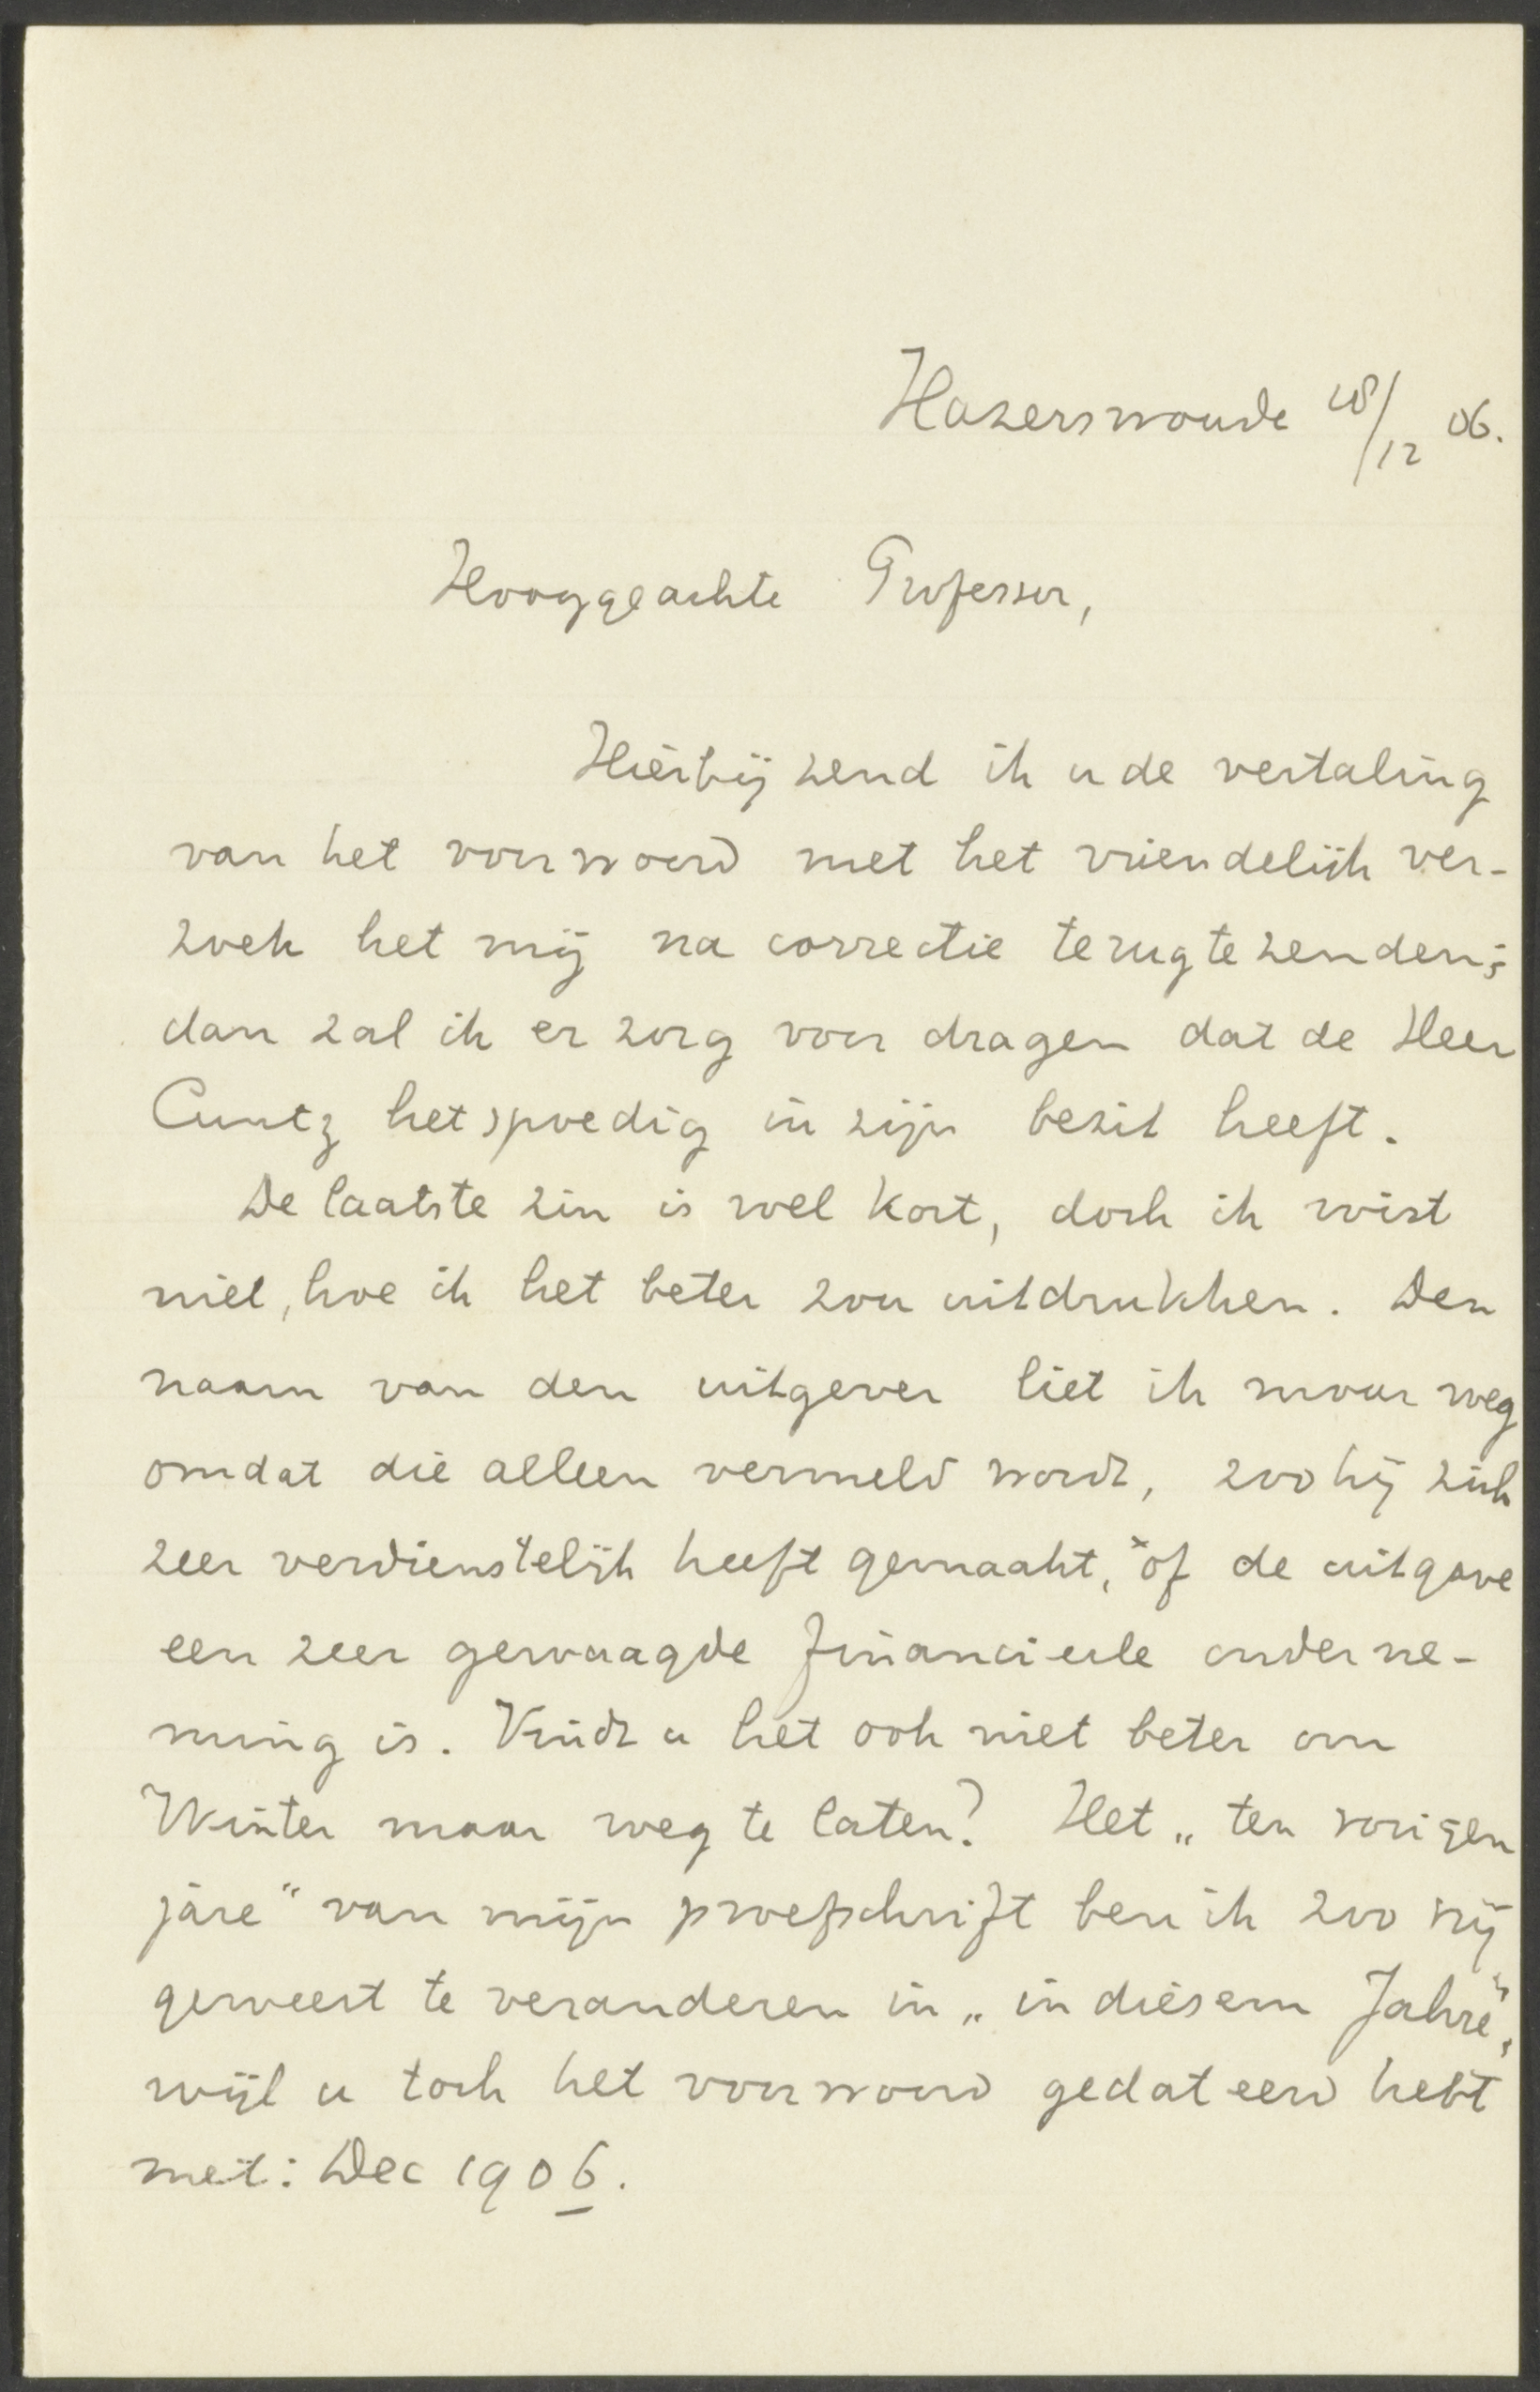 Hazerswoude 18/12 06.
Hooggeachte Professor,
Hierbij zend ik u de vertaling
van het voorwoord met het vriendelijk ver-
zoek het mij na correctie terug te zenden;
dan zal ik er zorg voor dragen dat de Heer
Cuntz het spoedig in zijn bezit heeft.
De laatste zin is wel kort, doch ik wist
niet, hoe ik het beter zou uitdrukken. Den
naam van den uitgever liet ik maar weg
omdat die alleen vermeld wordt, zoo hij zich
zeer verdienstelijk heeft gemaakt, òf de uitgave
een zeer gewaagde financieele onderne-
ming is. Vindt u het ook niet beter om
Winter maar weg te laten? Het „ten vorigen
jare“ van mijn proefschrift ben ik zoo vrij
geweest te veranderen in „in diesem Jahre“,
wijl u toch het voorwoord gedateerd hebt
met: Dec 1906.